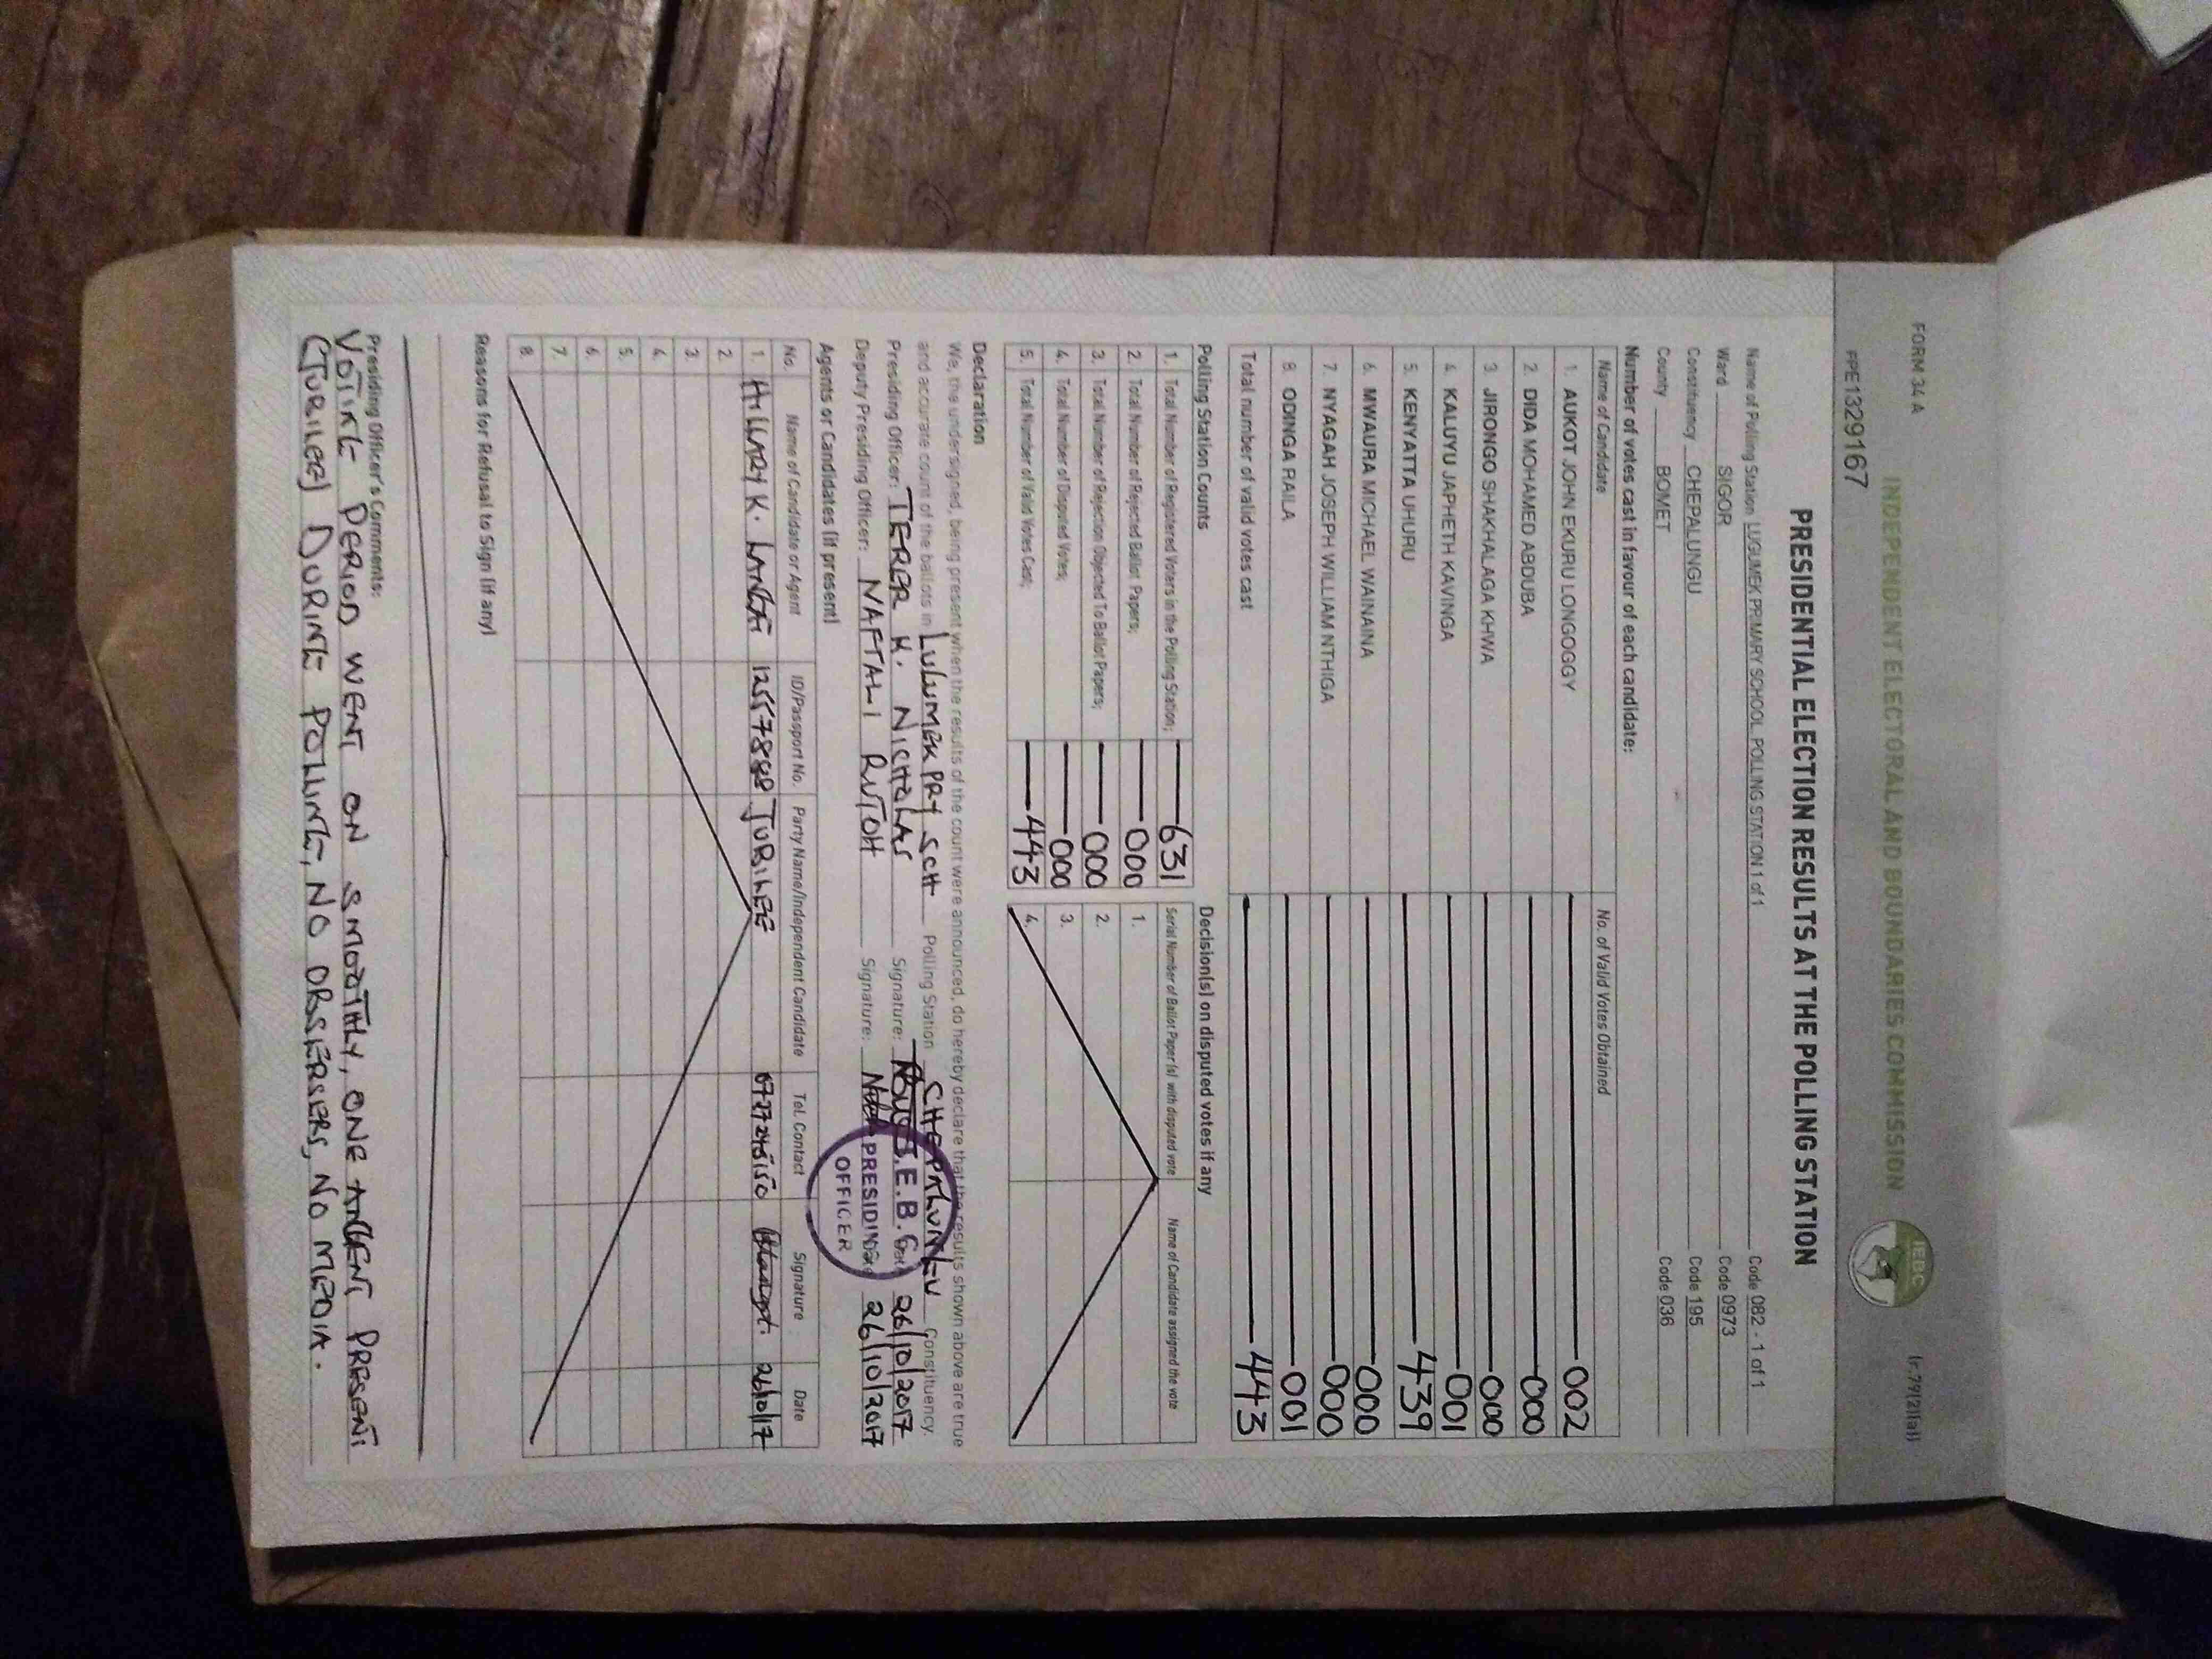 FORM 34 A
(r.79(2)(a))
INDEPENDENT ELECTORAL AND BOUNDARIES COMMISSION
IEBC
PPE1329167
PRESIDENTIAL ELECTION RESULTS AT THE POLLING STATION
Name of Polling Station LUGUMEK PRIMARY SCHOOL POLLING STATION 1 of 1 Code 082 - 1 of 1
Ward SIGOR Code 0973
Constituency CHEPALUNGU Code 195
County BOMET Code 036
Number of votes cast in favour of each candidate:
Name of Candidate No. of Valid Votes Obtained
1. AUKOT JOHN EKURU LONGOGGY 002
2. DIDA MOHAMED ABDUBA 000
3. JIRONGO SHAKHALAGA KHWA 000
4. KALUYU JAPHETH KAVINGA 001
5. KENYATTA UHURU 439
6. MWAURA MICHAEL WAINAINA 000
7. NYAGAH JOSEPH WILLIAM NTHIGA 000
8. ODINGA RAILA 001
Total number of valid votes cast 443
Polling Station Counts
1. Total Number of Registered Voters in the Polling Station; 631
2. Total Number of Rejected Ballot Papers; 000
3. Total Number of Rejection Objected To Ballot Papers; 000
4. Total Number of Disputed Votes; 000
5. Total Number of Valid Votes Cast; 443
Decision(s) on disputed votes if any
Serial Number of Ballot Paper (s) with disputed vote Name of Candidate assigned the vote
1.
2.
3.
4.
Declaration
We, the undersigned, being present when the results of the count were announced, do hereby declare that the results shown above are true
and accurate count of the ballots in LUGUMEK PRY SCH Polling Station CHEPALUNGU Constituency.
Presiding Officer: TERER K. NICHOLAS Signature: 26/10/2017
Deputy Presiding Officer: NAFTALI RUTOH Signature: 26/10/2017
I.E.B.C
PRESIDING
OFFICER
Agents or Candidates (if present)
No. Name of Candidate or Agent ID/Passport No. Party Name/Independent Candidate Tel. Contact Signature Date
1. HILLARY K. LANGAT 12557888 JUBILEE 0727245150 26/10/17
2.
3.
4.
5.
6.
7.
8.
Reasons for Refusal to Sign (if any)
Presiding Officer's Comments:
VOTING PERIOD WENT ON SMOOTHLY, ONE AGENT PRESENT
(JUBILEE) DURING POLLING, NO OBSERSERS, NO MEDIA.